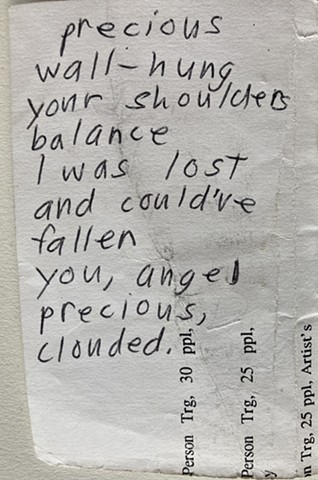 precious
wall-hung
your shoulders
balance
I was lost
and could've
fallen
you, angel
precious,
clouded.
Person Trg, 30 ppl,
Person Trg, 25 ppl,
y
n Trg, 25 ppl, Artist's